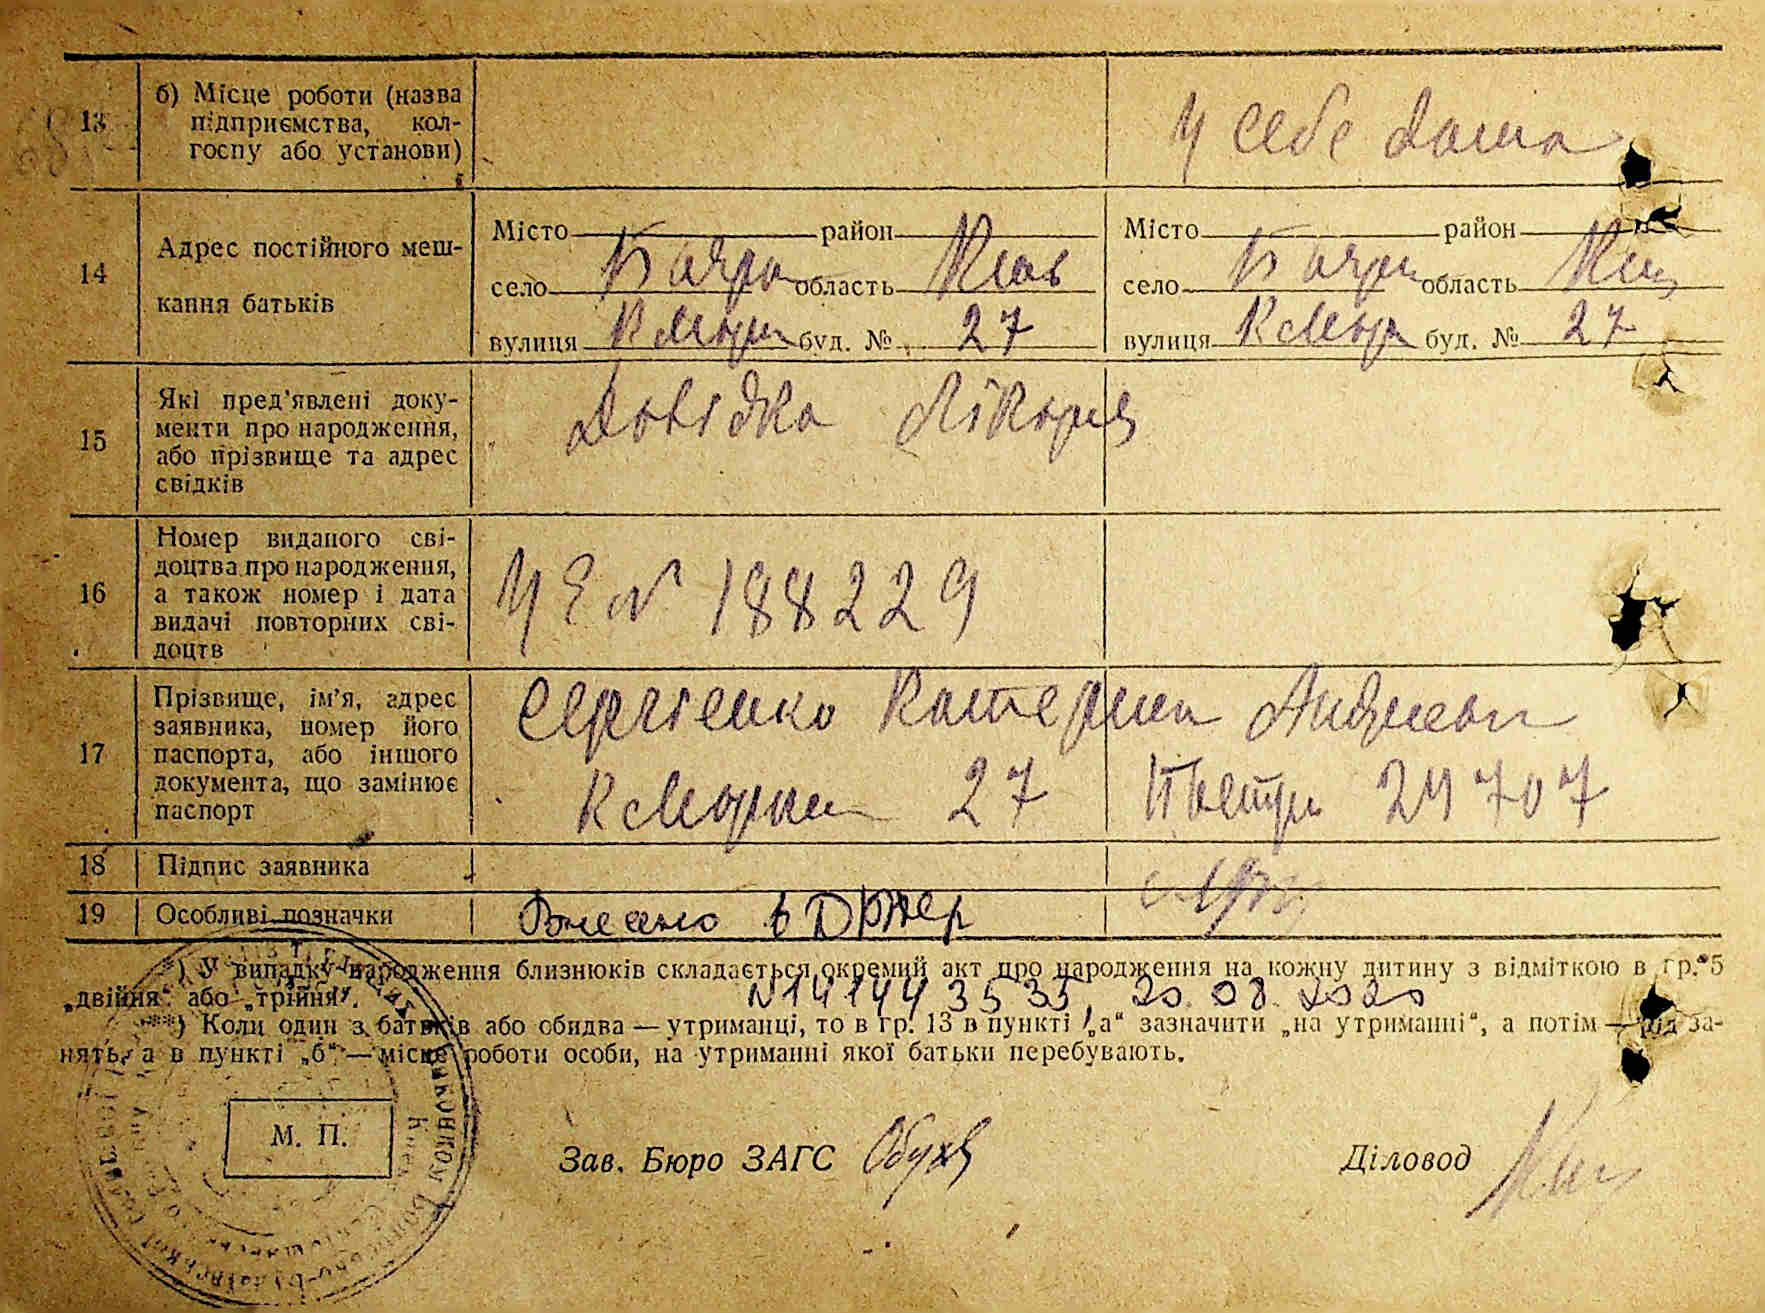 13
б) Місце роботи (назва
підприємства, кол-
госпу або установи)
у себе дома
14
Адрес постійного меш-
кання батьків
Місто район
село Бояри область Київ
вулиця К Маркса буд. № 27
Місто район
село Бояри область Киів
вулиця К Маркса буд. № 27
15
Які пред’явлені доку-
менти про народження,
або прізвище та адрес
свідків
Довідка лікаря
16
Номер виданого сві-
доцтва про народження,
а також номер і дата
видачі повторних сві-
доцтв
УЕ № 188229
17
Прізвище, ім’я, адрес
заявника, номер його
паспорта, або іншого
документа, що замінює
паспорт
Сергієнко Катерина Андреевн
К Маркса 27 24707
18
Підпис заявника
19
Особливі позначки
Внесено в
*) У випадку народження близнюків складається окремий акт про народження на кожну дитину з відміткою в гр. 5
„двійня“ або „трійня“.
№ 141443535, 20.08.2020
**) Коли один з батьків або обидва — утриманці, то в гр. 13 в пункті „а“ зазначити „на утриманні“, а потім — рід за-
нять, а в пункті „б“ — місце роботи особи, на утриманні якої батьки перебувають.
М. П.
Зав. Бюро ЗАГС
Діловод